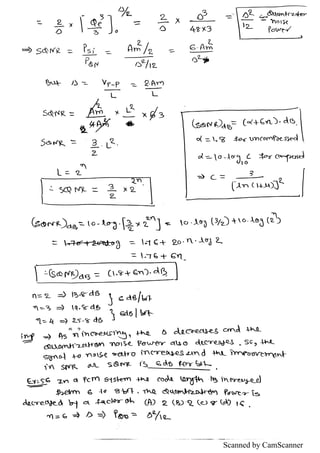 = 2/Δ × [Qe³/3]₀^(Δ/2) = 2/Δ × Δ³/(48×3) = Δ²/12 = Quantization noise Power
⇒ SQNR = Psi/PQN = (Am²/2)/(Δ²/12) = 6·Am²/Δ²
But Δ = VP-P/L = 2Am/L
SQNR = Am²/4Am² × L²/2 × 6 3
SQNR = 3/2 · L²
L = 2ⁿ
∴ SQNR = 3/2 × 2²ⁿ
(SQNR)dB = (α+6n) dB.
α = 1.8 for uncompressed
α = 10·log₁₀ C for compressed
⇒ C = 3/[ln(1+μ)]²
(SQNR)dB = 10·log [3/2 × 2²ⁿ] = 10·log (3/2) + 10·log (2²ⁿ)
= 1.76 + 20 log = 1.76 + 20·n·log 2
= 1.76 + 6n.
∴ (SQNR)dB = (1.8+6n) dB
n=2 ⇒ 13.8 dB
n=3 ⇒ 19.8 dB } 6 dB/bit
n=4 ⇒ 25.8 dB } 6 dB/bit
Imp → As "n" increasing, the Δ decreases and the
Quantization noise Power also decreases. So, the
signal to noise ratio increases and the improvement
in SNR or SQNR is 6dB Per bit.
Ex:56 In a PCM System the code length is increased
from 6 to 8 bit. The Quantization Power is
decreased by a factor of (A) 2 (B) 2 (C) 8 (D) 16.
n=6 ⇒ Δ ⇒ PQN = Δ²/12
Scanned by CamScanner